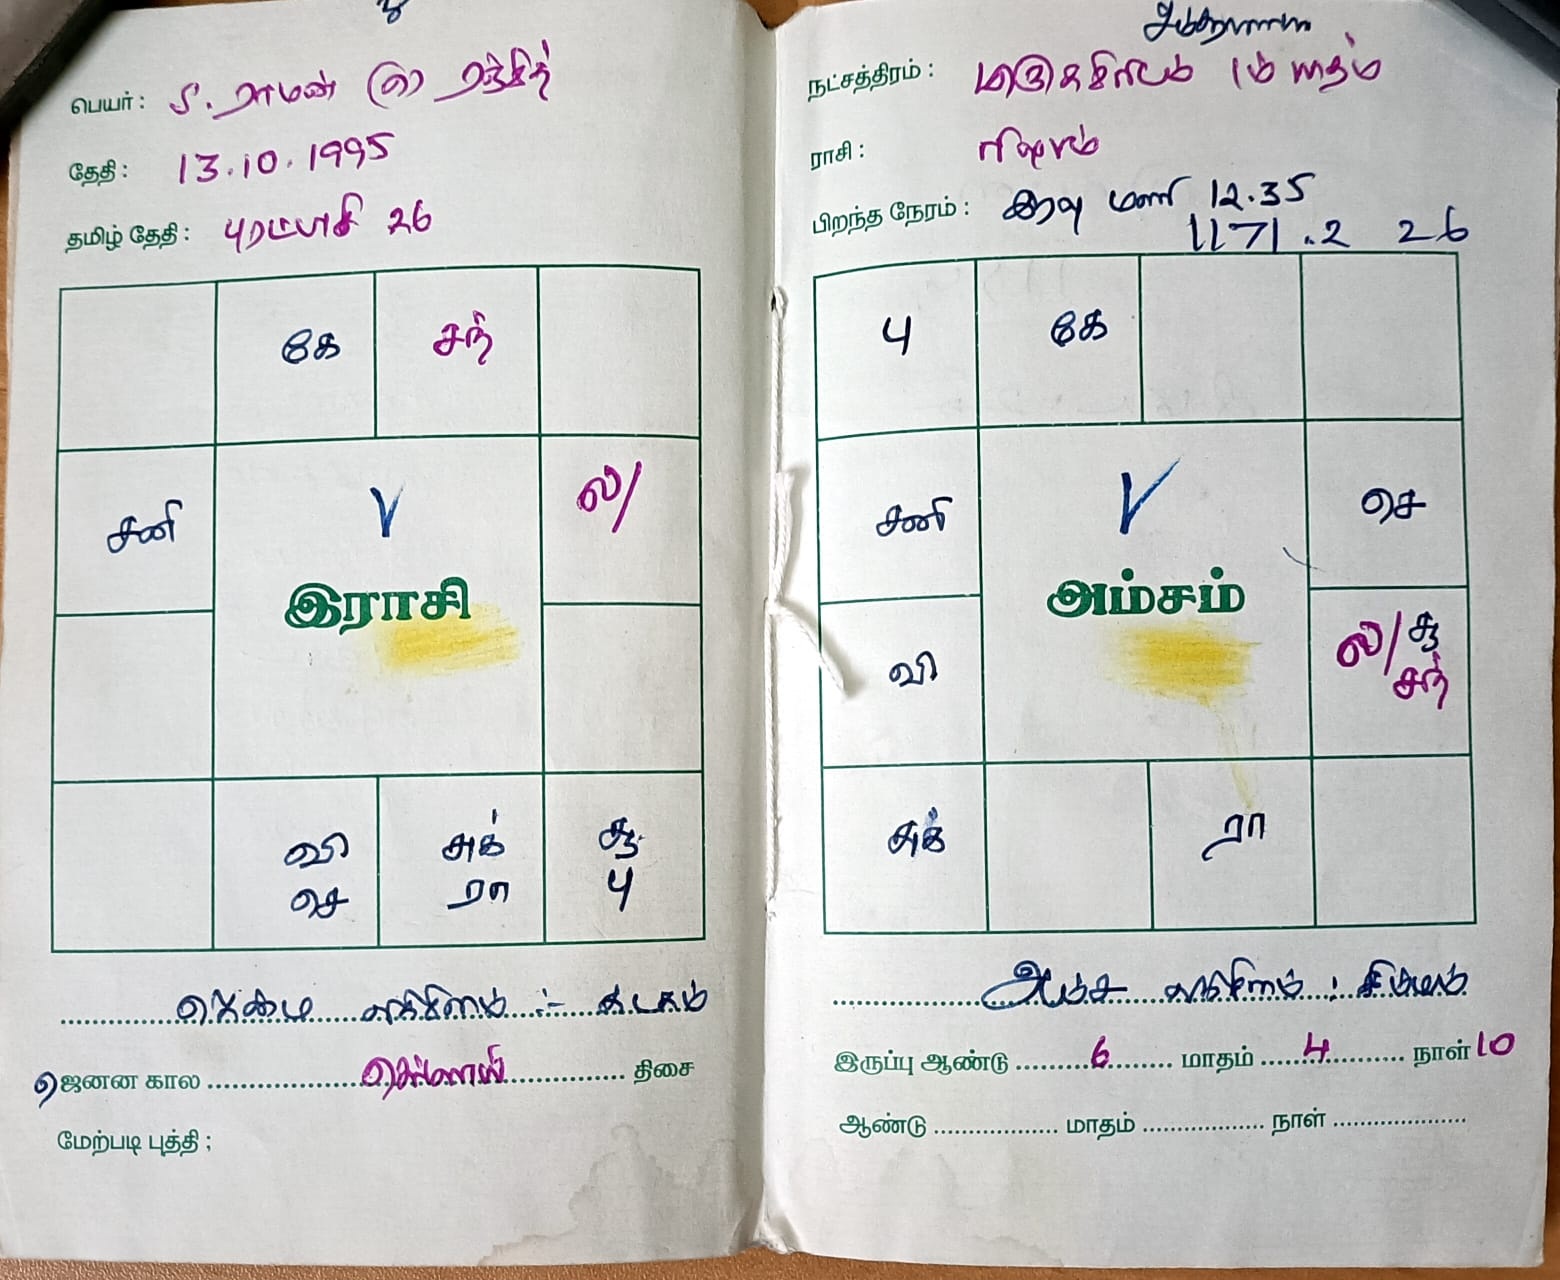 பெயர் : S. ராமன் (எ) ரஞ்சித்
தேதி : 13.10.1995
தமிழ் தேதி : புரட்டாசி 26
கே சந்
சனி ல/
இராசி
வி சுக் சூ
செ ரா பு
லக்னம் :- கடகம்
ஜெனன கால செவ்வாய் திசை
மேற்படி புத்தி ;
நட்சத்திரம் : மிருகசிரிடம் 1ம் பாதம்
ராசி : ரிஷபம்
பிறந்த நேரம் : இரவு மணி 12.35
1171.2 26
பு கே
சனி செ
அம்சம்
வி ல/ சூ
சந்
சுக் ரா
அம்ச லக்கினம் : சிம்மம்
இருப்பு ஆண்டு 6 மாதம் 4 நாள் 10
ஆண்டு மாதம் நாள்